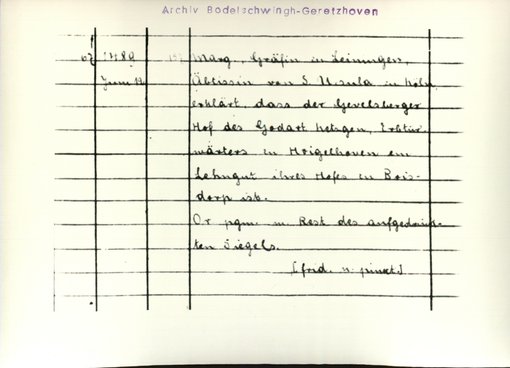 Archiv Bodelschwingh-Geretzhoven
67 1489 Marg., Gräfin zu Leiningen,
Juni 19 Äbtissin von S. Ursula in Köln
erklärt, dass der Gevelsberger
Hof des Godart Hetsgen, Erbtür-
wärters in Heigelhoven ein
Lehngut ihres Hofes in Bois-
dorp ist.
Or. pgm. m. Rest des aufgedrück-
ten Siegels.